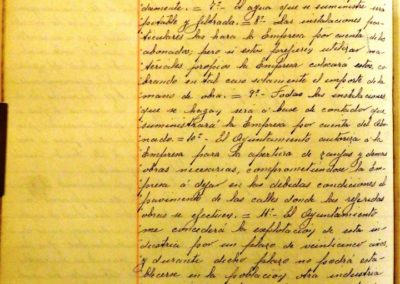 damente. = 7º- El agua que se suministre será
potable y filtrada. = 8º- Las instalaciones par-
ticulares las hará la Empresa por cuenta de los
abonados; pero si estos prefieren utilizar ma-
teriales propios la Empresa colocará estos, co-
brando en tal caso solamente el importe de la
mano de obra. = 9º- Todas las instalaciones
que se hagan, será a base de contador que
suministrará la Empresa por cuenta del abo-
nado. = 10º- El Ayuntamiento autoriza á la
Empresa para la apertura de zanjas y demas
obras necesarias, comprometiendose la Em-
presa á dejar en las debidas condiciones el
pavimento de las calles donde las referidas
obras se efectuen. = 11º- El Ayuntamiento
me concederá la explotación de esta in-
dustria por un plazo de veinticinco años,
y durante dicho plazo no podrá esta-
blecerse en la poblacion, otra industria